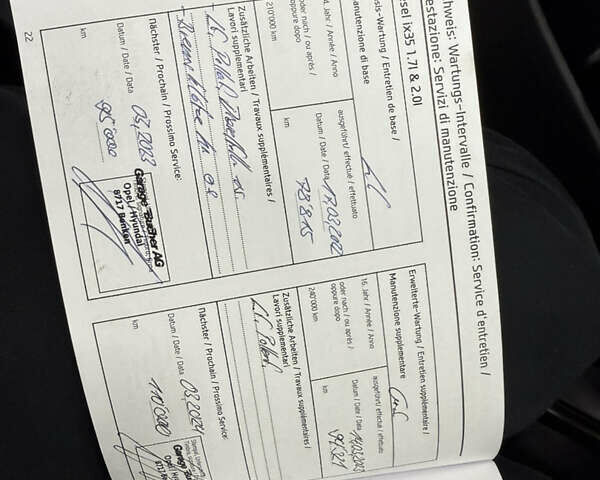 hweis: Wartungs-Intervalle / Confirmation: Service d'entretien /
estazione: Servizi di manutenzione
esel ix35 1.7l & 2.0l
sis-Wartung / Entretien de base /
anutenzione di base
14. Jahr / Année / Anno
oder nach / ou après /
oppure dopo
210'000 km
ausgeführt / effectué / effettuato
Datum / Date / Data 17.03.202
km 78'815
Zusätzliche Arbeiten / Travaux supplémentaires /
Lavori supplementari
Nächster / Prochain / Prossimo Service:
Datum / Date / Data 03.2023
km 95'000
Garage Bucher AG
Opel / Hyundai
8717 Benken
22
Erweiterte-Wartung / Entretien supplémentaire /
Manutenzione supplementare
16. Jahr / Année / Anno
oder nach / ou après /
oppure dopo
240'000 km
ausgeführt / effectué / effettuato
Datum / Date / Data
km 94'321
Zusätzliche Arbeiten / Travaux supplémentaires /
Lavori supplementari
Nächster / Prochain / Prossimo Service:
Datum / Date / Data 03.2024
km 110'000
Garage
Opel
8717